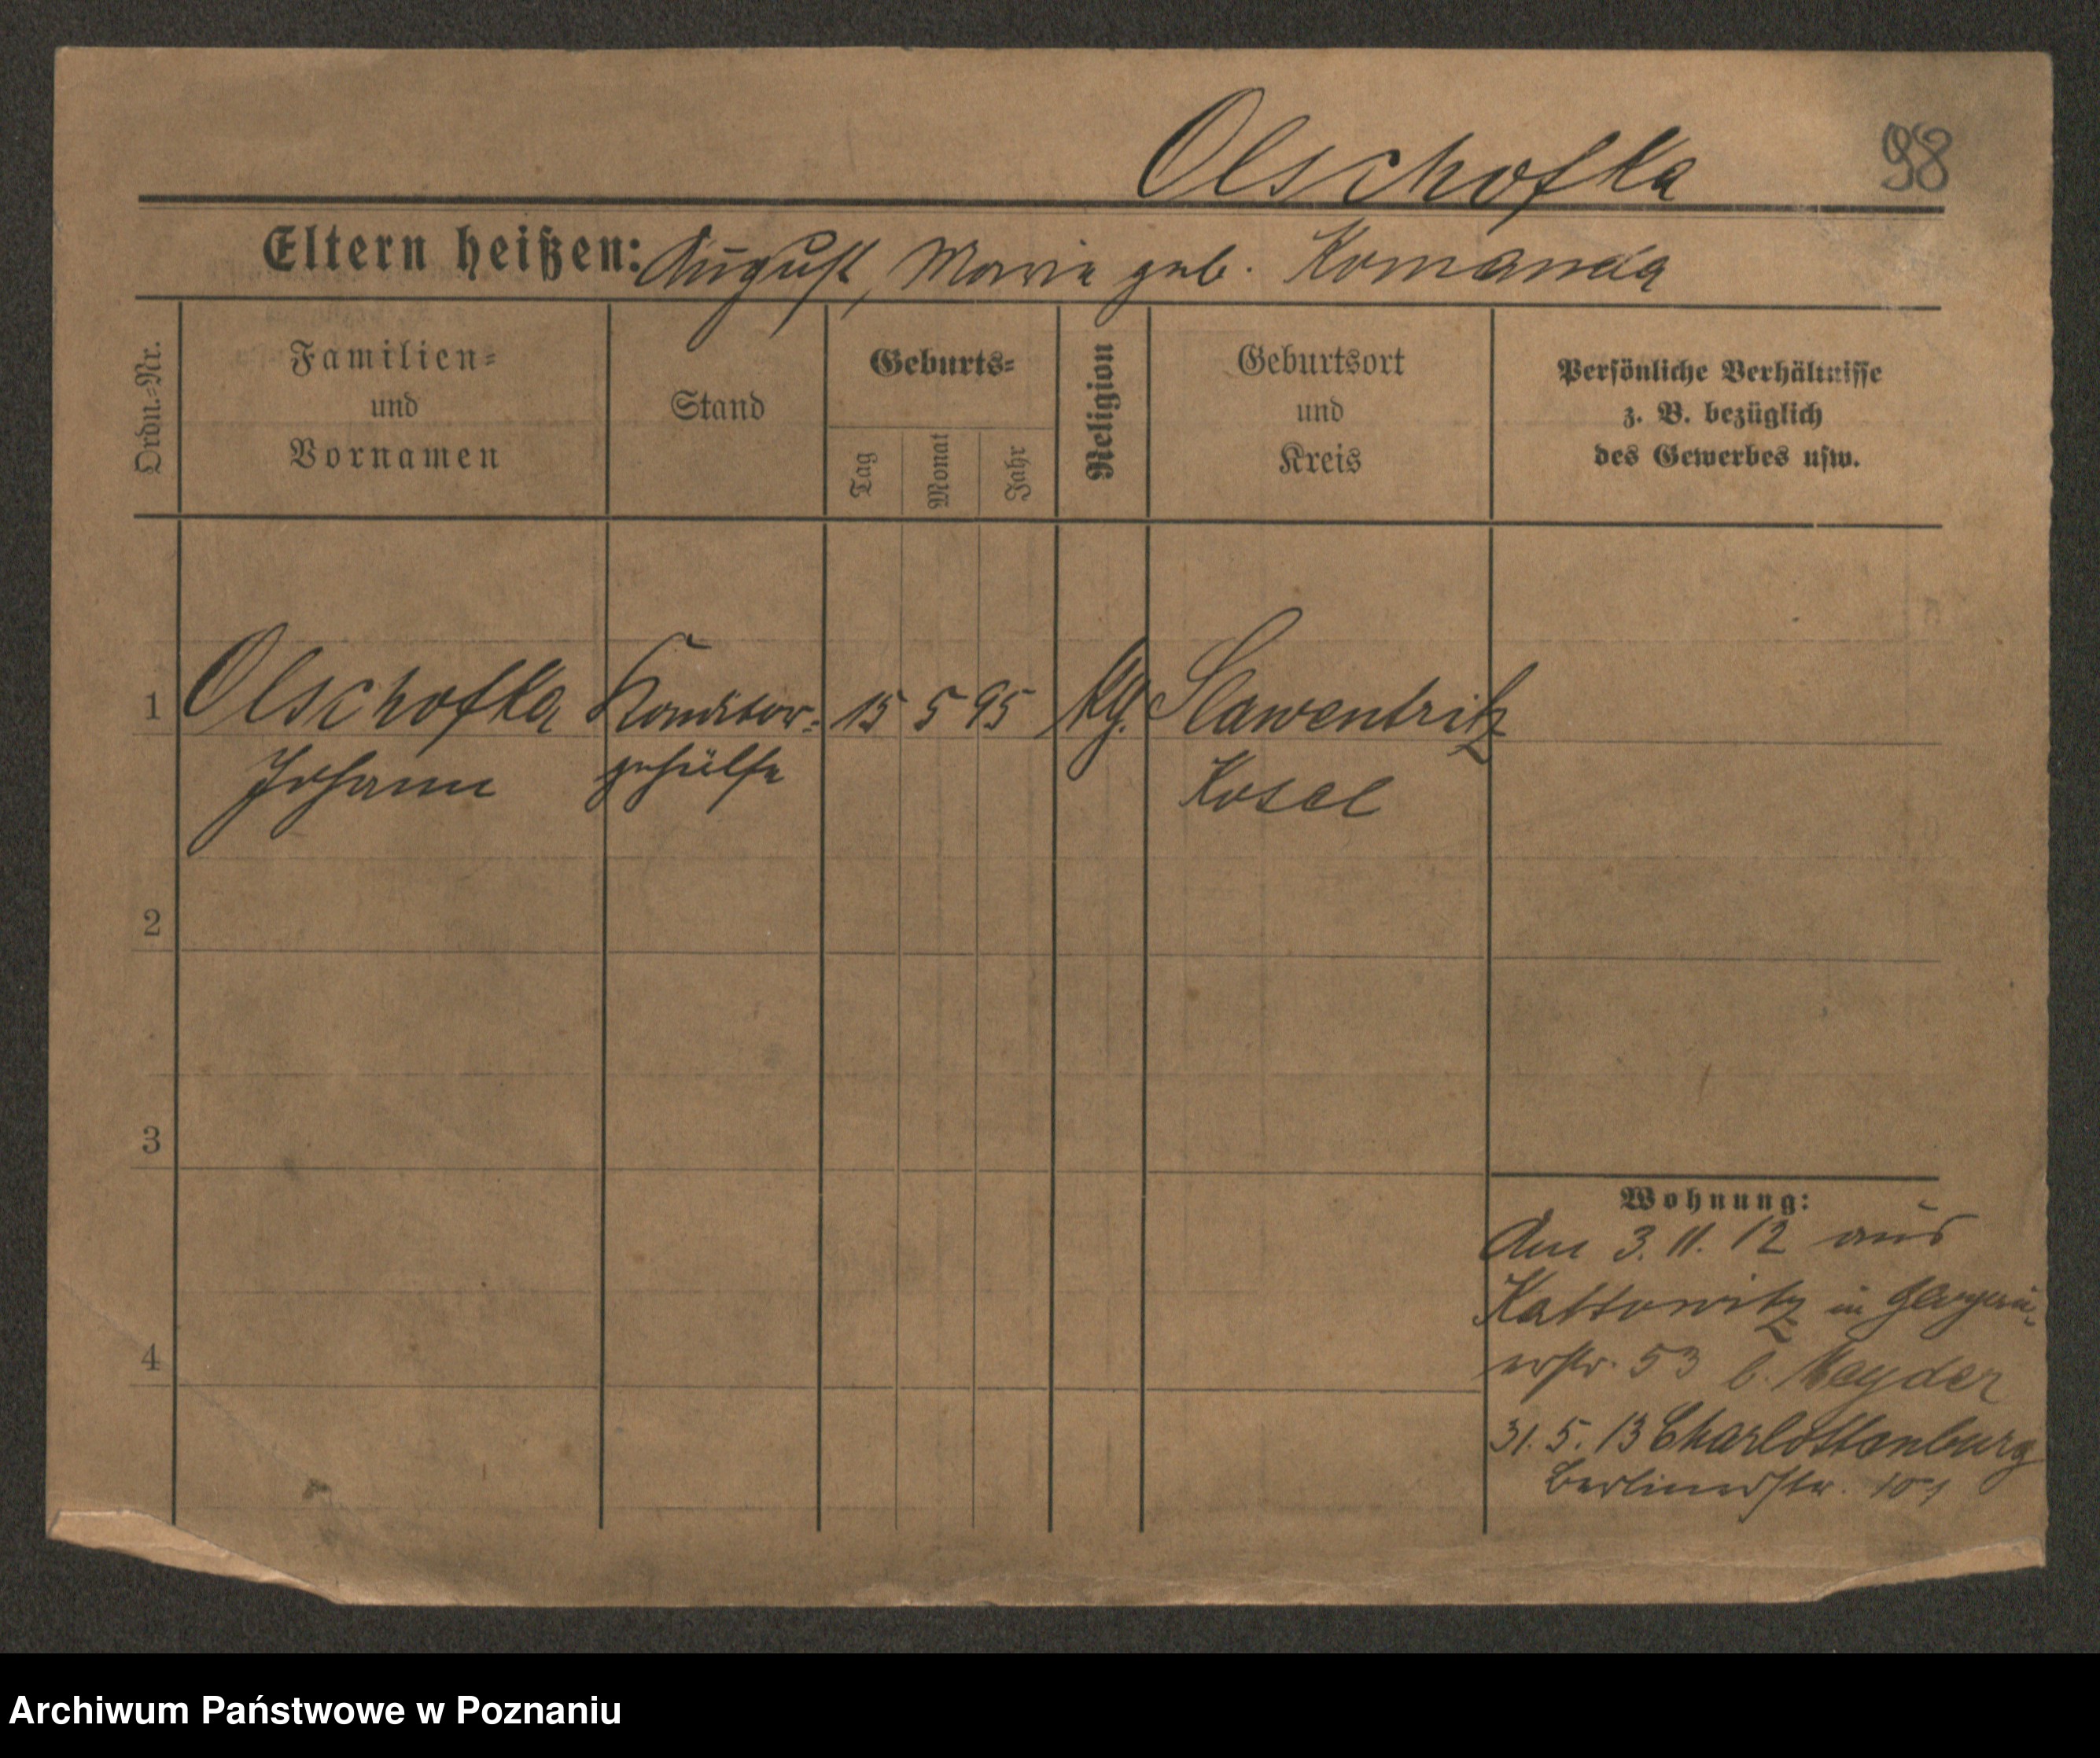 Olschofka 98
Eltern heißen: August, Marie geb. Komanda
Ordn.-Nr.
Familien-
und
Vornamen
Stand
Geburts-
Tag
Monat
Jahr
Religion
Geburtsort
und
Kreis
Persönliche Verhältnisse
z. B. bezüglich
des Gewerbes usw.
1 Olschofka Konditor- 15 5 95 kth. Slawentzitz
Johann gehülfe Kosel
2
3
4
Wohnung:
Am 3. 11. 12 aus
Kattowitz in Glogau-
erstr. 53 b. Heyder
31. 5. 13 Charlottenburg
Berlinerstr. 101
Archiwum Państwowe w Poznaniu